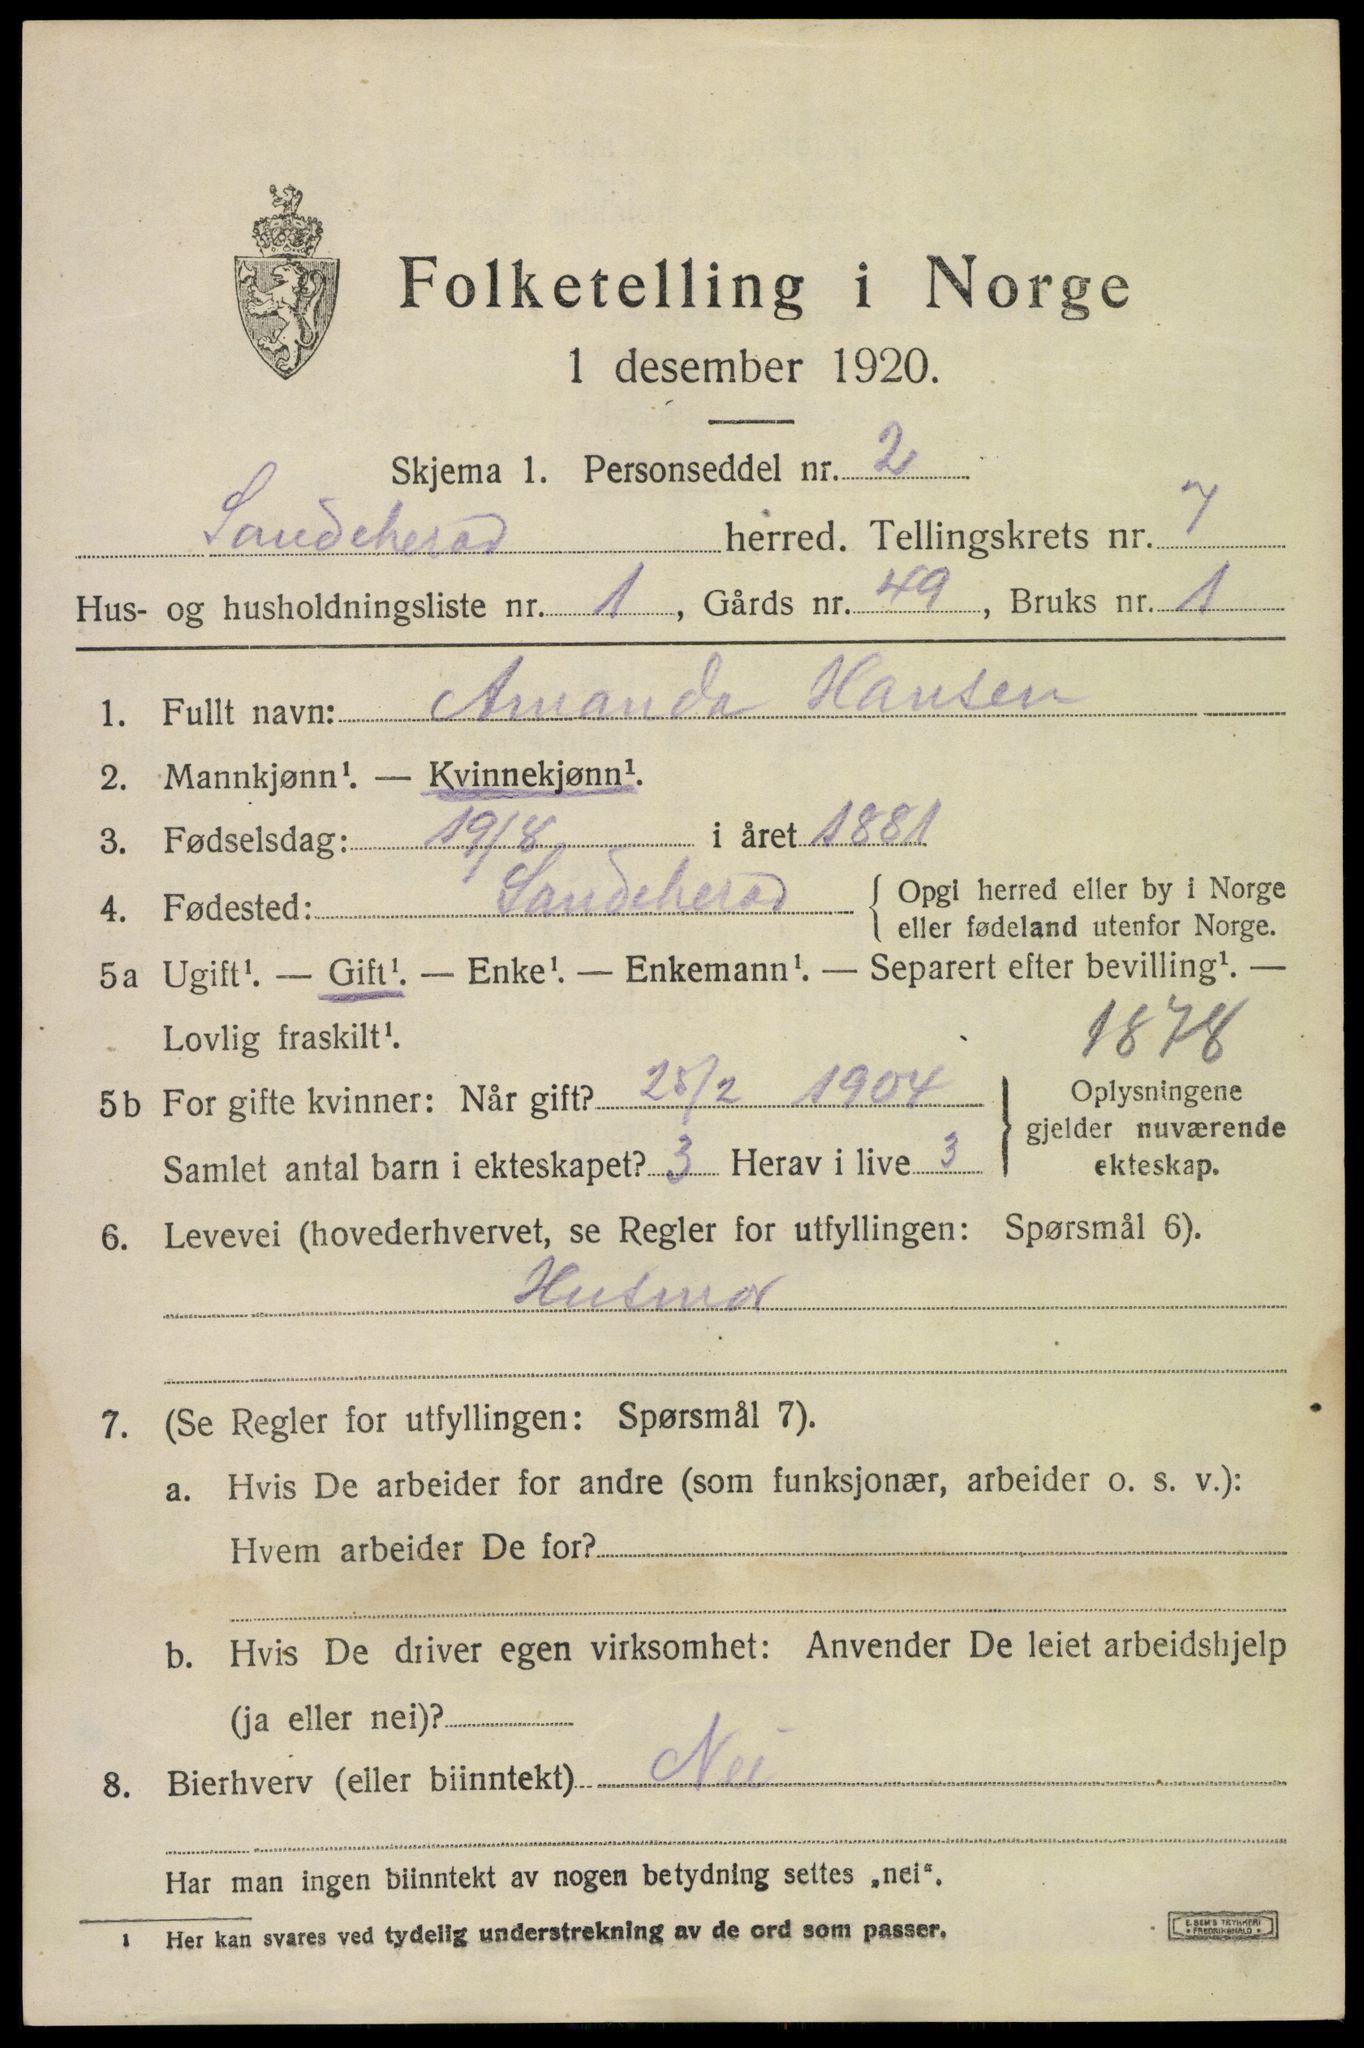 Folketelling i Norge
1 desember 1920.
Skjema 1. Personseddel nr. 2
Sandeherad herred. Tellingskrets nr. 7
Hus- og husholdningsliste nr. 1, Gårds nr. 49, Bruks nr. 1
1. Fullt navn: Amanda Hansen
2. Mannkjønn¹. — Kvinnekjønn¹.
3. Fødselsdag: 19/8 i året 1881
4. Fødested: Sandeherad { Opgi herred eller by i Norge
eller fødeland utenfor Norge.
5a Ugift¹. — Gift¹. — Enke¹. — Enkemann¹. — Separert efter bevilling¹. —
Lovlig fraskilt¹.
1878
5b For gifte kvinner: Når gift? 25/2 1904
Samlet antal barn i ekteskapet? 3 Herav i live 3
} Oplysningene
gjelder nuværende
ekteskap.
6. Levevei (hovederhvervet, se Regler for utfyllingen: Spørsmål 6).
Husmor
7. (Se Regler for utfyllingen: Spørsmål 7).
a. Hvis De arbeider for andre (som funksjonær, arbeider o. s. v.):
Hvem arbeider De for?
b. Hvis De driver egen virksomhet: Anvender De leiet arbeidshjelp
(ja eller nei)?
8. Bierhverv (eller biinntekt) Nei
Har man ingen biinntekt av nogen betydning settes „nei“.
1 Her kan svares ved tydelig understrekning av de ord som passer.
E. SEM'S TRYKKERI
FREDRIKSHALD